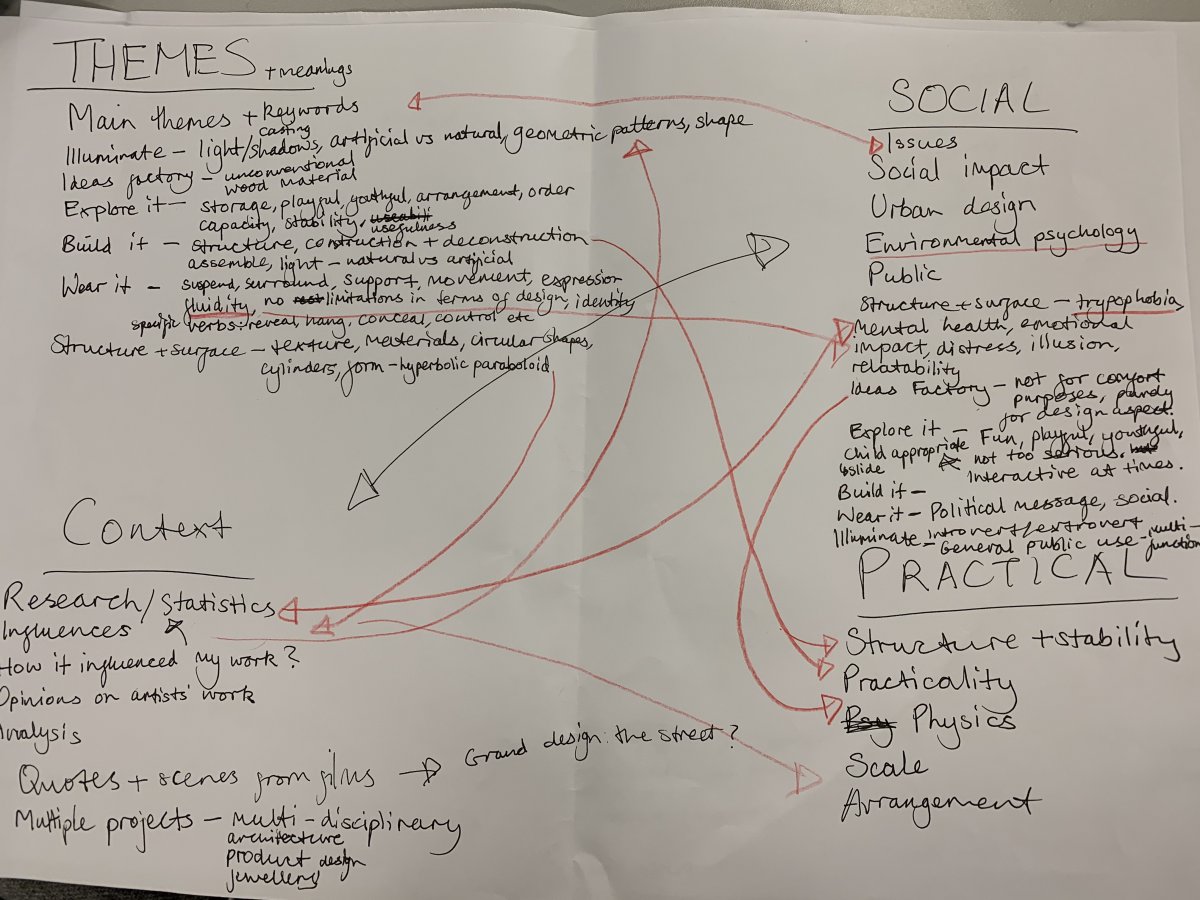 THEMES + meanings
Main themes + keywords
casting
Illuminate - light/shadows, artificial vs natural, geometric patterns, shape
Ideas factory - unconventional
wood material
Explore it - storage, playful, youthful, arrangement, order
capacity, stability,
usefulness
Build it - structure, construction + deconstruction
assemble, light - natural vs artificial
Wear it - suspend, surround, support, movement, expression
fluidity, no limitations in terms of design, identity
specific verbs: reveal, hang, conceal, control etc
Structure + surface - texture, materials, circular shapes,
cylinders, form - hyperbolic paraboloid
SOCIAL
Issues
Social impact
Urban design
Environmental psychology
Public
Structure + surface - trypophobia,
mental health, emotional
impact, distress, illusion,
relatability
Ideas Factory - not for comfort
purposes, purely
for design aspect.
Explore it - Fun, playful, youthful,
child appropriate not too serious.
slide Interactive at times.
Build it -
Wear it - Political message, social.
introvert/extrovert
Illuminate - General public use - multi-
function
Context
Research/Statistics
Influences
How it influenced my work?
Opinions on artists' work
Analysis
Quotes + scenes from films → Grand design: the street?
Multiple projects - multi-disciplinary
architecture
product design
jewellery
PRACTICAL
Structure + stability
Practicality
Physics
Scale
Arrangement